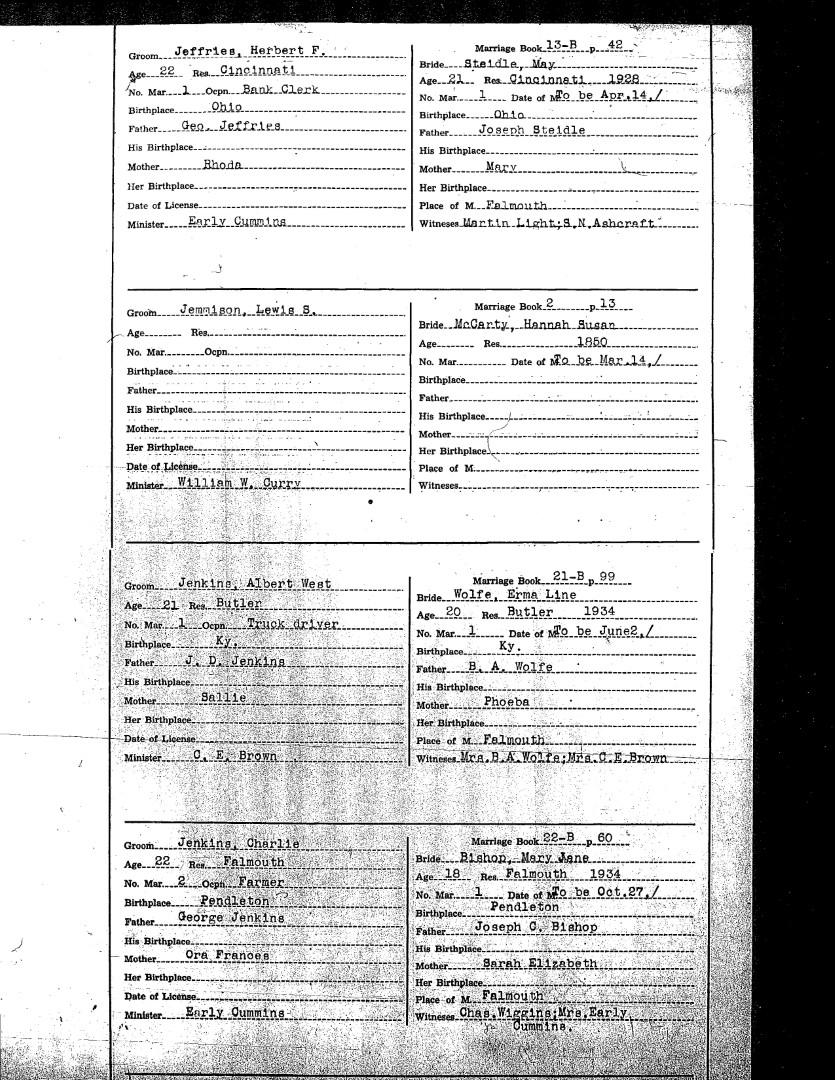 Groom Jeffries, Herbert F.
Age 22 Res. Cincinnati
No. Mar. 1 Ocpn. Bank Clerk
Birthplace Ohio
Father Geo. Jeffries
His Birthplace
Mother Rhoda
Her Birthplace
Date of License
Minister Early Cummins
Marriage Book 13-B p. 42
Bride Steidle, May
Age 21 Res. Cincinnati 1928
No. Mar. 1 Date of M. To be Apr.14,/
Birthplace Ohio
Father Joseph Steidle
His Birthplace
Mother Mary
Her Birthplace
Place of M. Falmouth
Witneses Martin Light;S.N.Ashcraft
Groom Jemmison, Lewis S.
Age Res.
No. Mar. Ocpn.
Birthplace
Father
His Birthplace
Mother
Her Birthplace
Date of License
Minister William W. Curry
Marriage Book 2 p. 13
Bride McCarty, Hannah Susan
Age Res. 1850
No. Mar. Date of M. To be Mar.14,/
Birthplace
Father
His Birthplace
Mother
Her Birthplace
Place of M.
Witneses
Groom Jenkins, Albert West
Age 21 Res. Butler
No. Mar. 1 Ocpn. Truck driver
Birthplace Ky.
Father J. D. Jenkins
His Birthplace
Mother Sallie
Her Birthplace
Date of License
Minister C. E. Brown
Marriage Book 21-B p. 99
Bride Wolfe, Erma Line
Age 20 Res. Butler 1934
No. Mar. 1 Date of M. To be June2,/
Birthplace Ky.
Father B. A. Wolfe
His Birthplace
Mother Phoeba
Her Birthplace
Place of M. Falmouth
Witneses Mrs.B.A.Wolfe;Mrs.C.E.Brown
Groom Jenkins, Charlie
Age 22 Res. Falmouth
No. Mar. 2 Ocpn. Farmer
Birthplace Pendleton
Father George Jenkins
His Birthplace
Mother Ora Frances
Her Birthplace
Date of License
Minister Early Cummins
Marriage Book 22-B p. 60
Bride Bishop, Mary Jane
Age 18 Res. Falmouth 1934
No. Mar. 1 Date of M. To be Oct.27,/
Birthplace Pendleton
Father Joseph C. Bishop
His Birthplace
Mother Sarah Elizabeth
Her Birthplace
Place of M. Falmouth
Witneses Chas.Wiggins;Mrs.Early
Cummins.